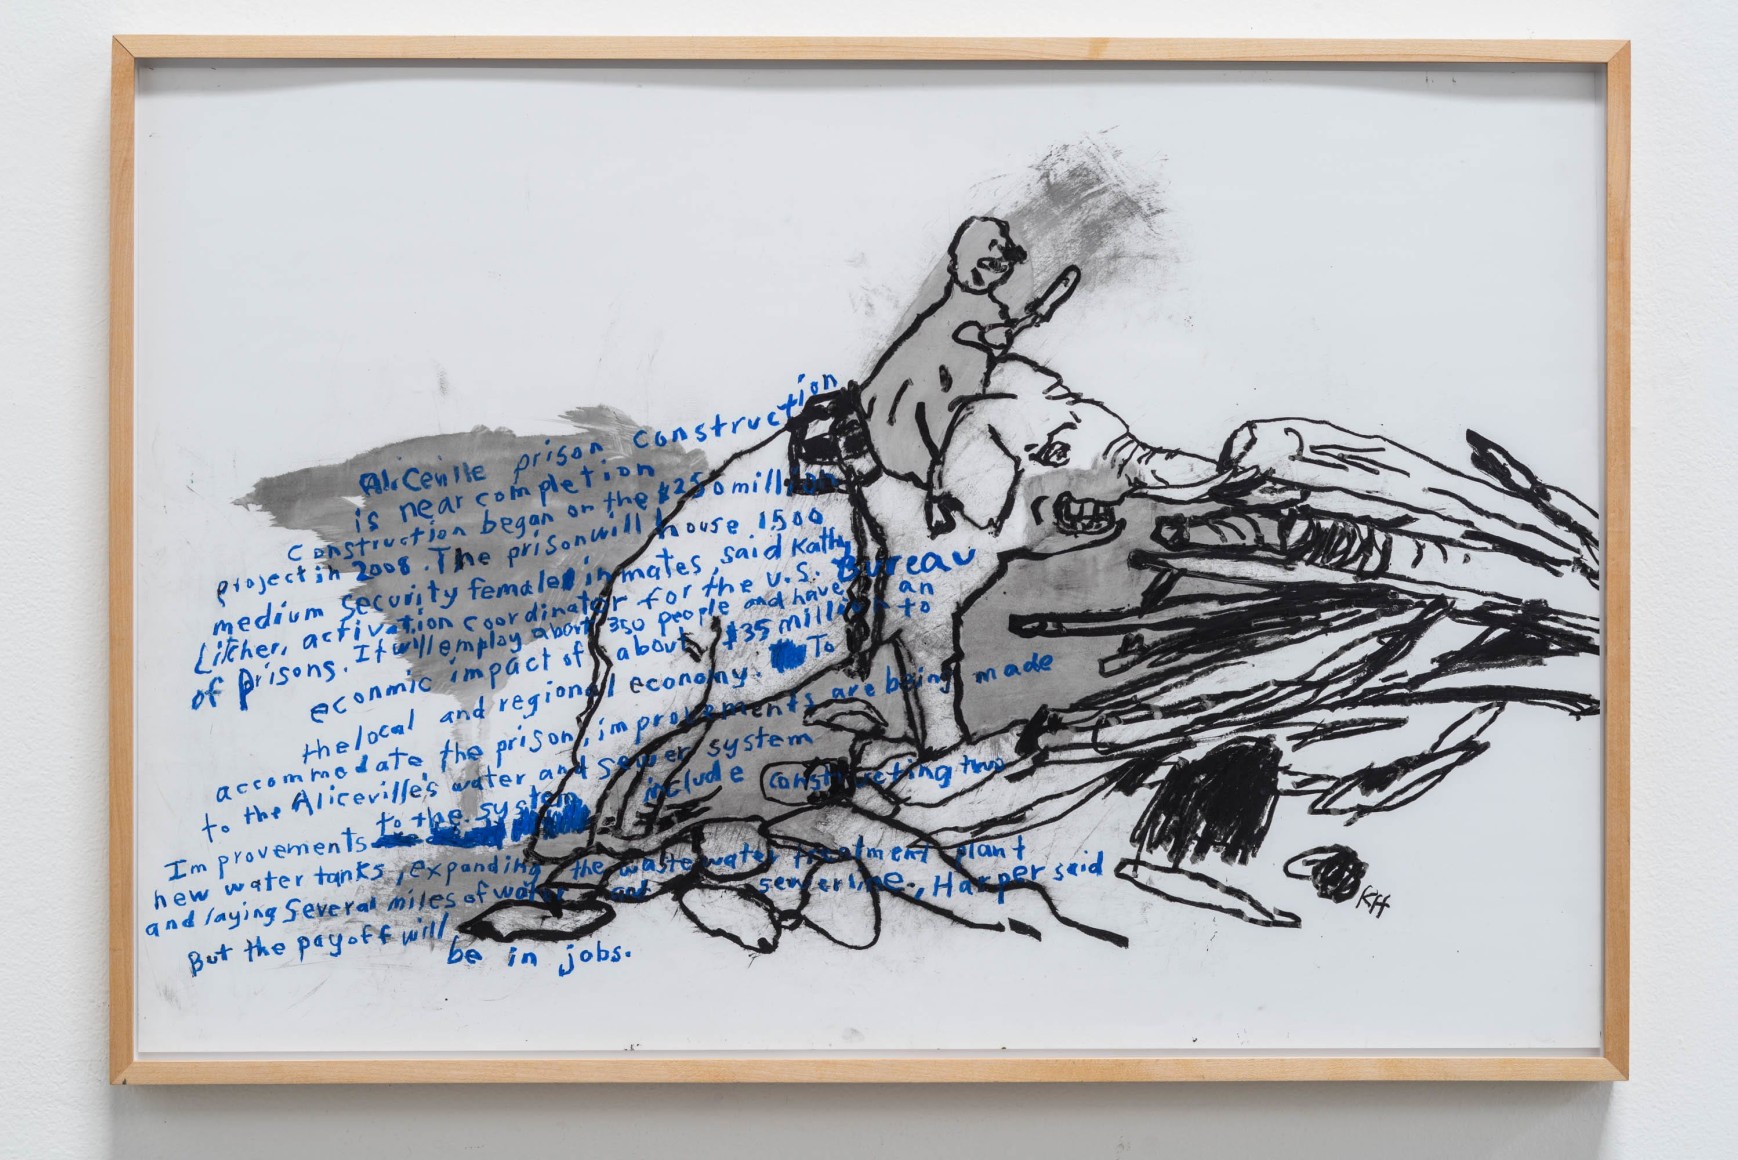 Aliceville prison construction
is near completion
Construction began on the $250 million
project in 2008. The prison will house 1500
medium security female inmates, said Kathy
Litcher, activation coordinator for the U.S. Bureau
of prisons. It will employ about 350 people and have an
econmic impact of about $35 million to
the local and regional economy. To
accommodate the prison, improvements are being made
to the Aliceville's water and sewer system
Improvements to the system include constructing two
new water tanks, expanding the waste water treatment plant
and laying several miles of water and sewerline, Harper said
But the payoff will be in jobs.
KH